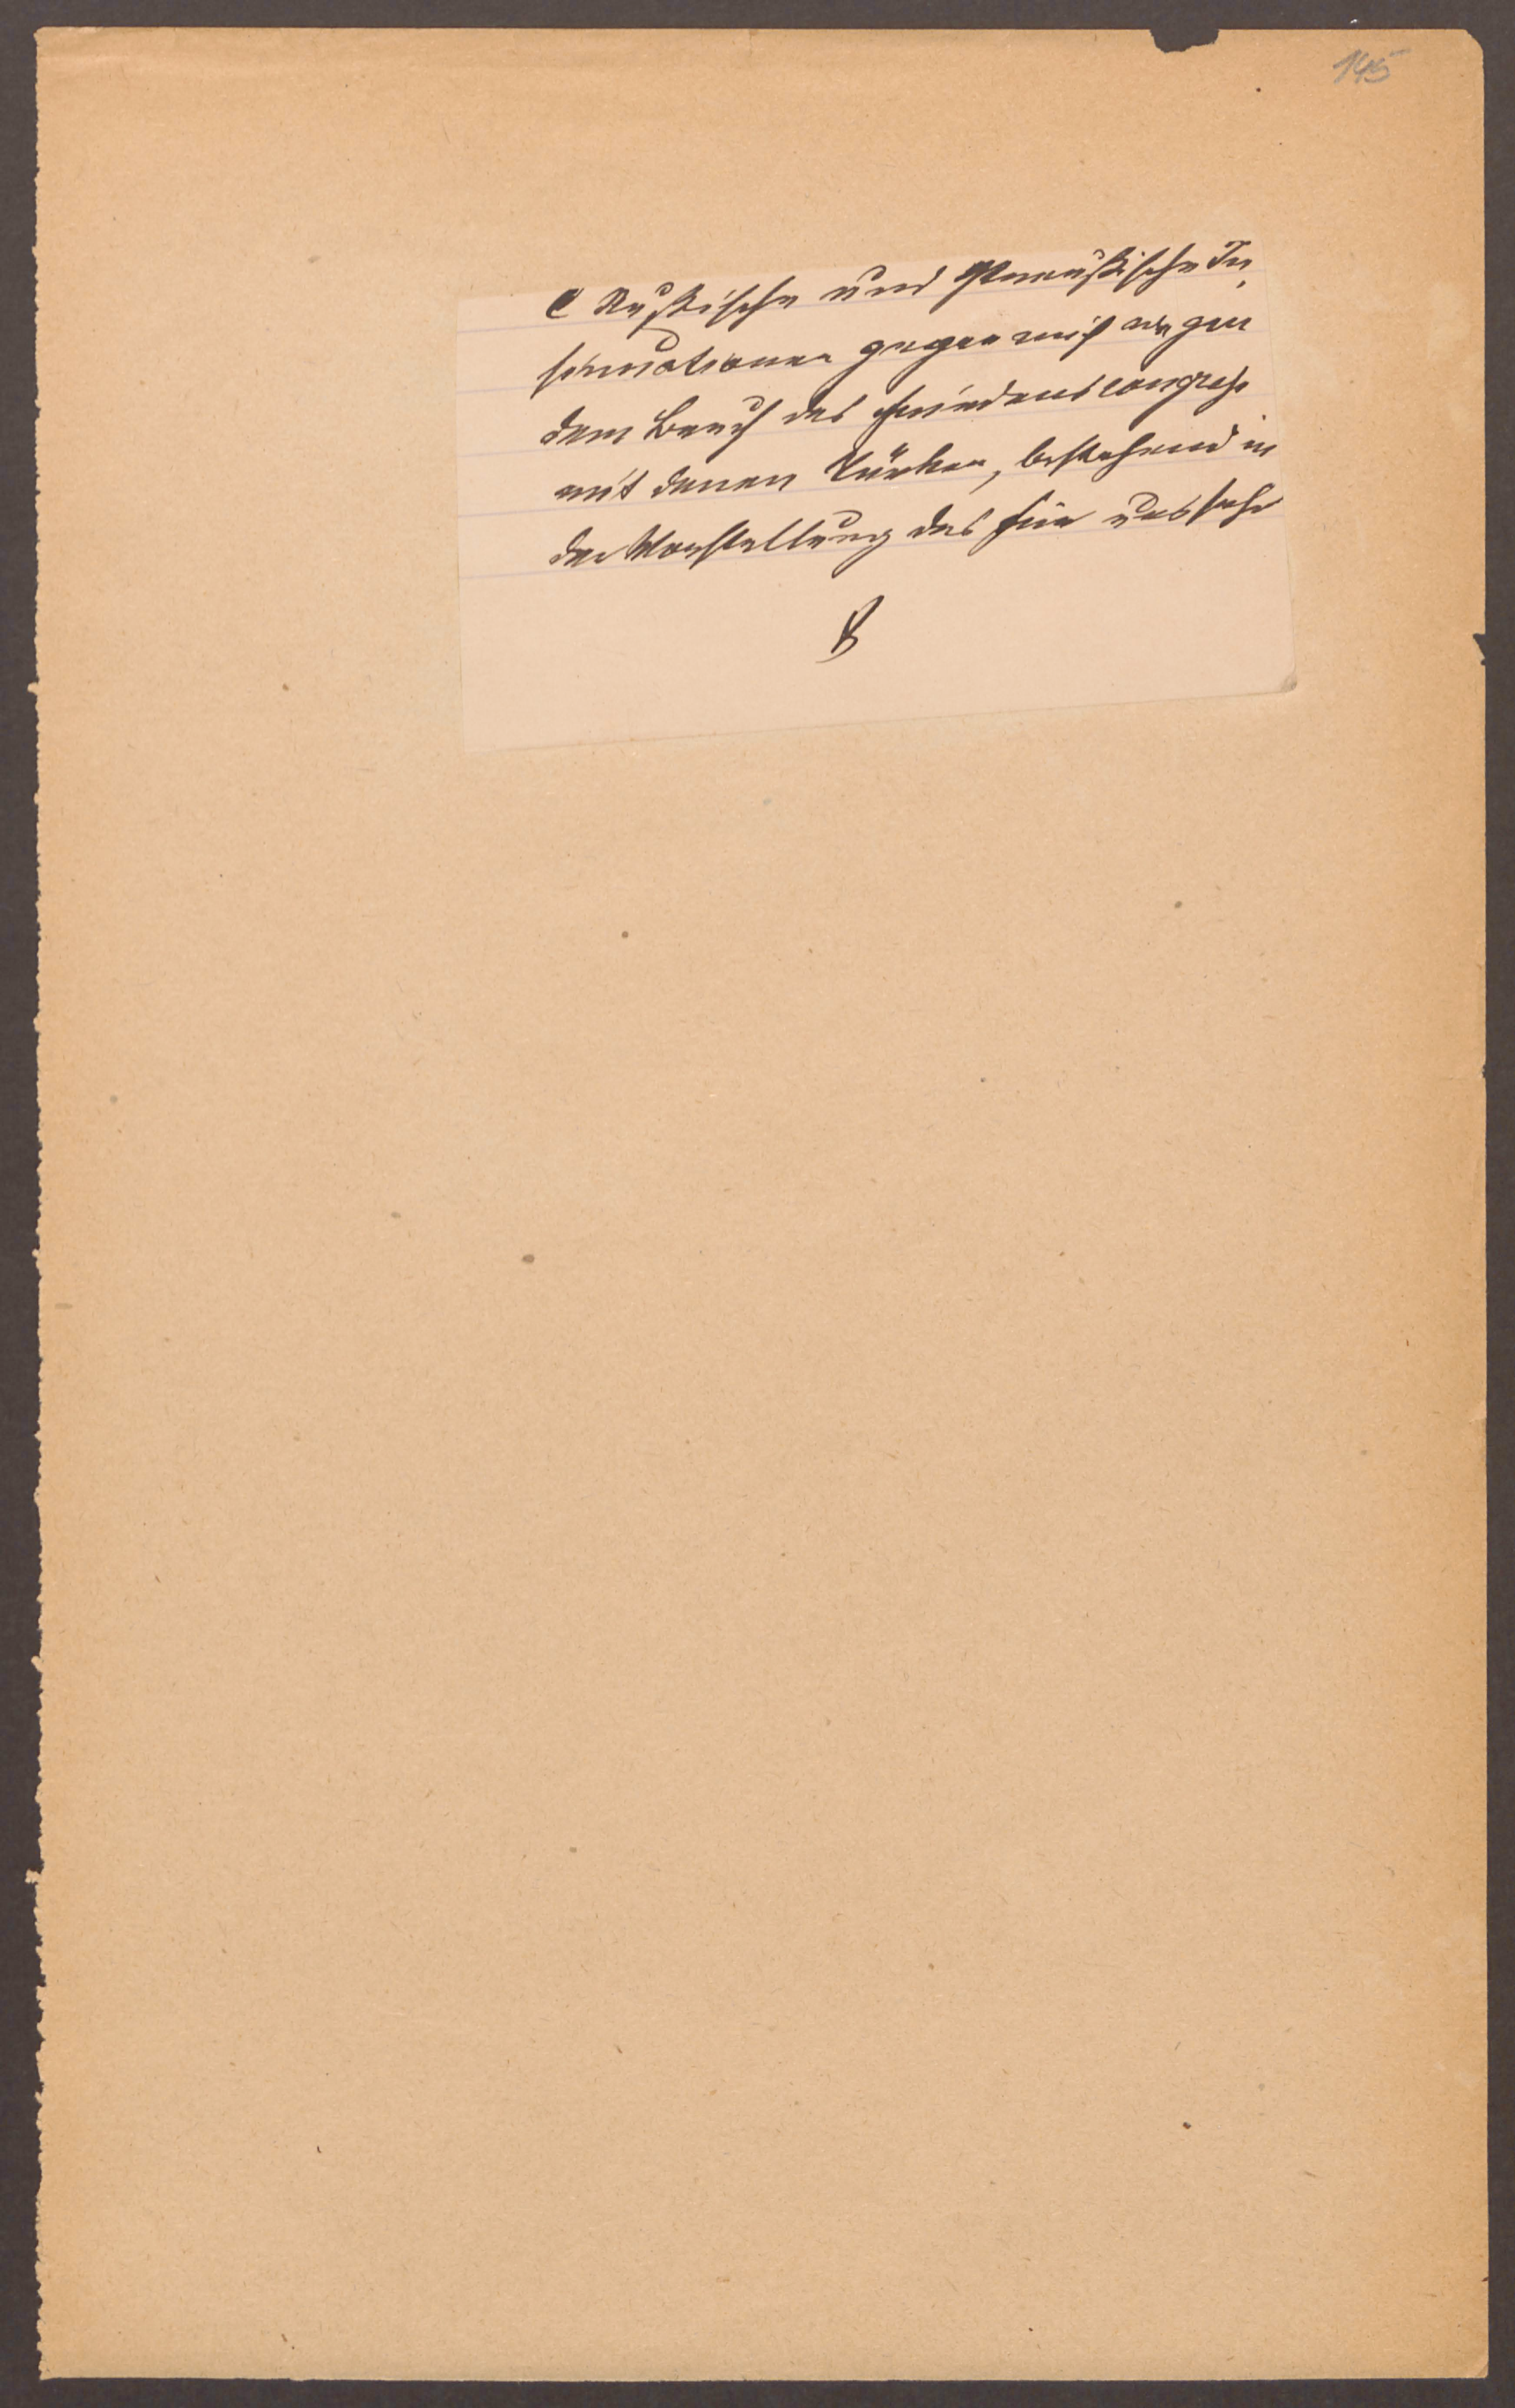 145
C Rußische und Preußische In,
sinuationen gegen mich wegen
dem Bruch des Friedenscongreße
mit denen Türken, bestehend in
der Vorstellung des für uns sehr